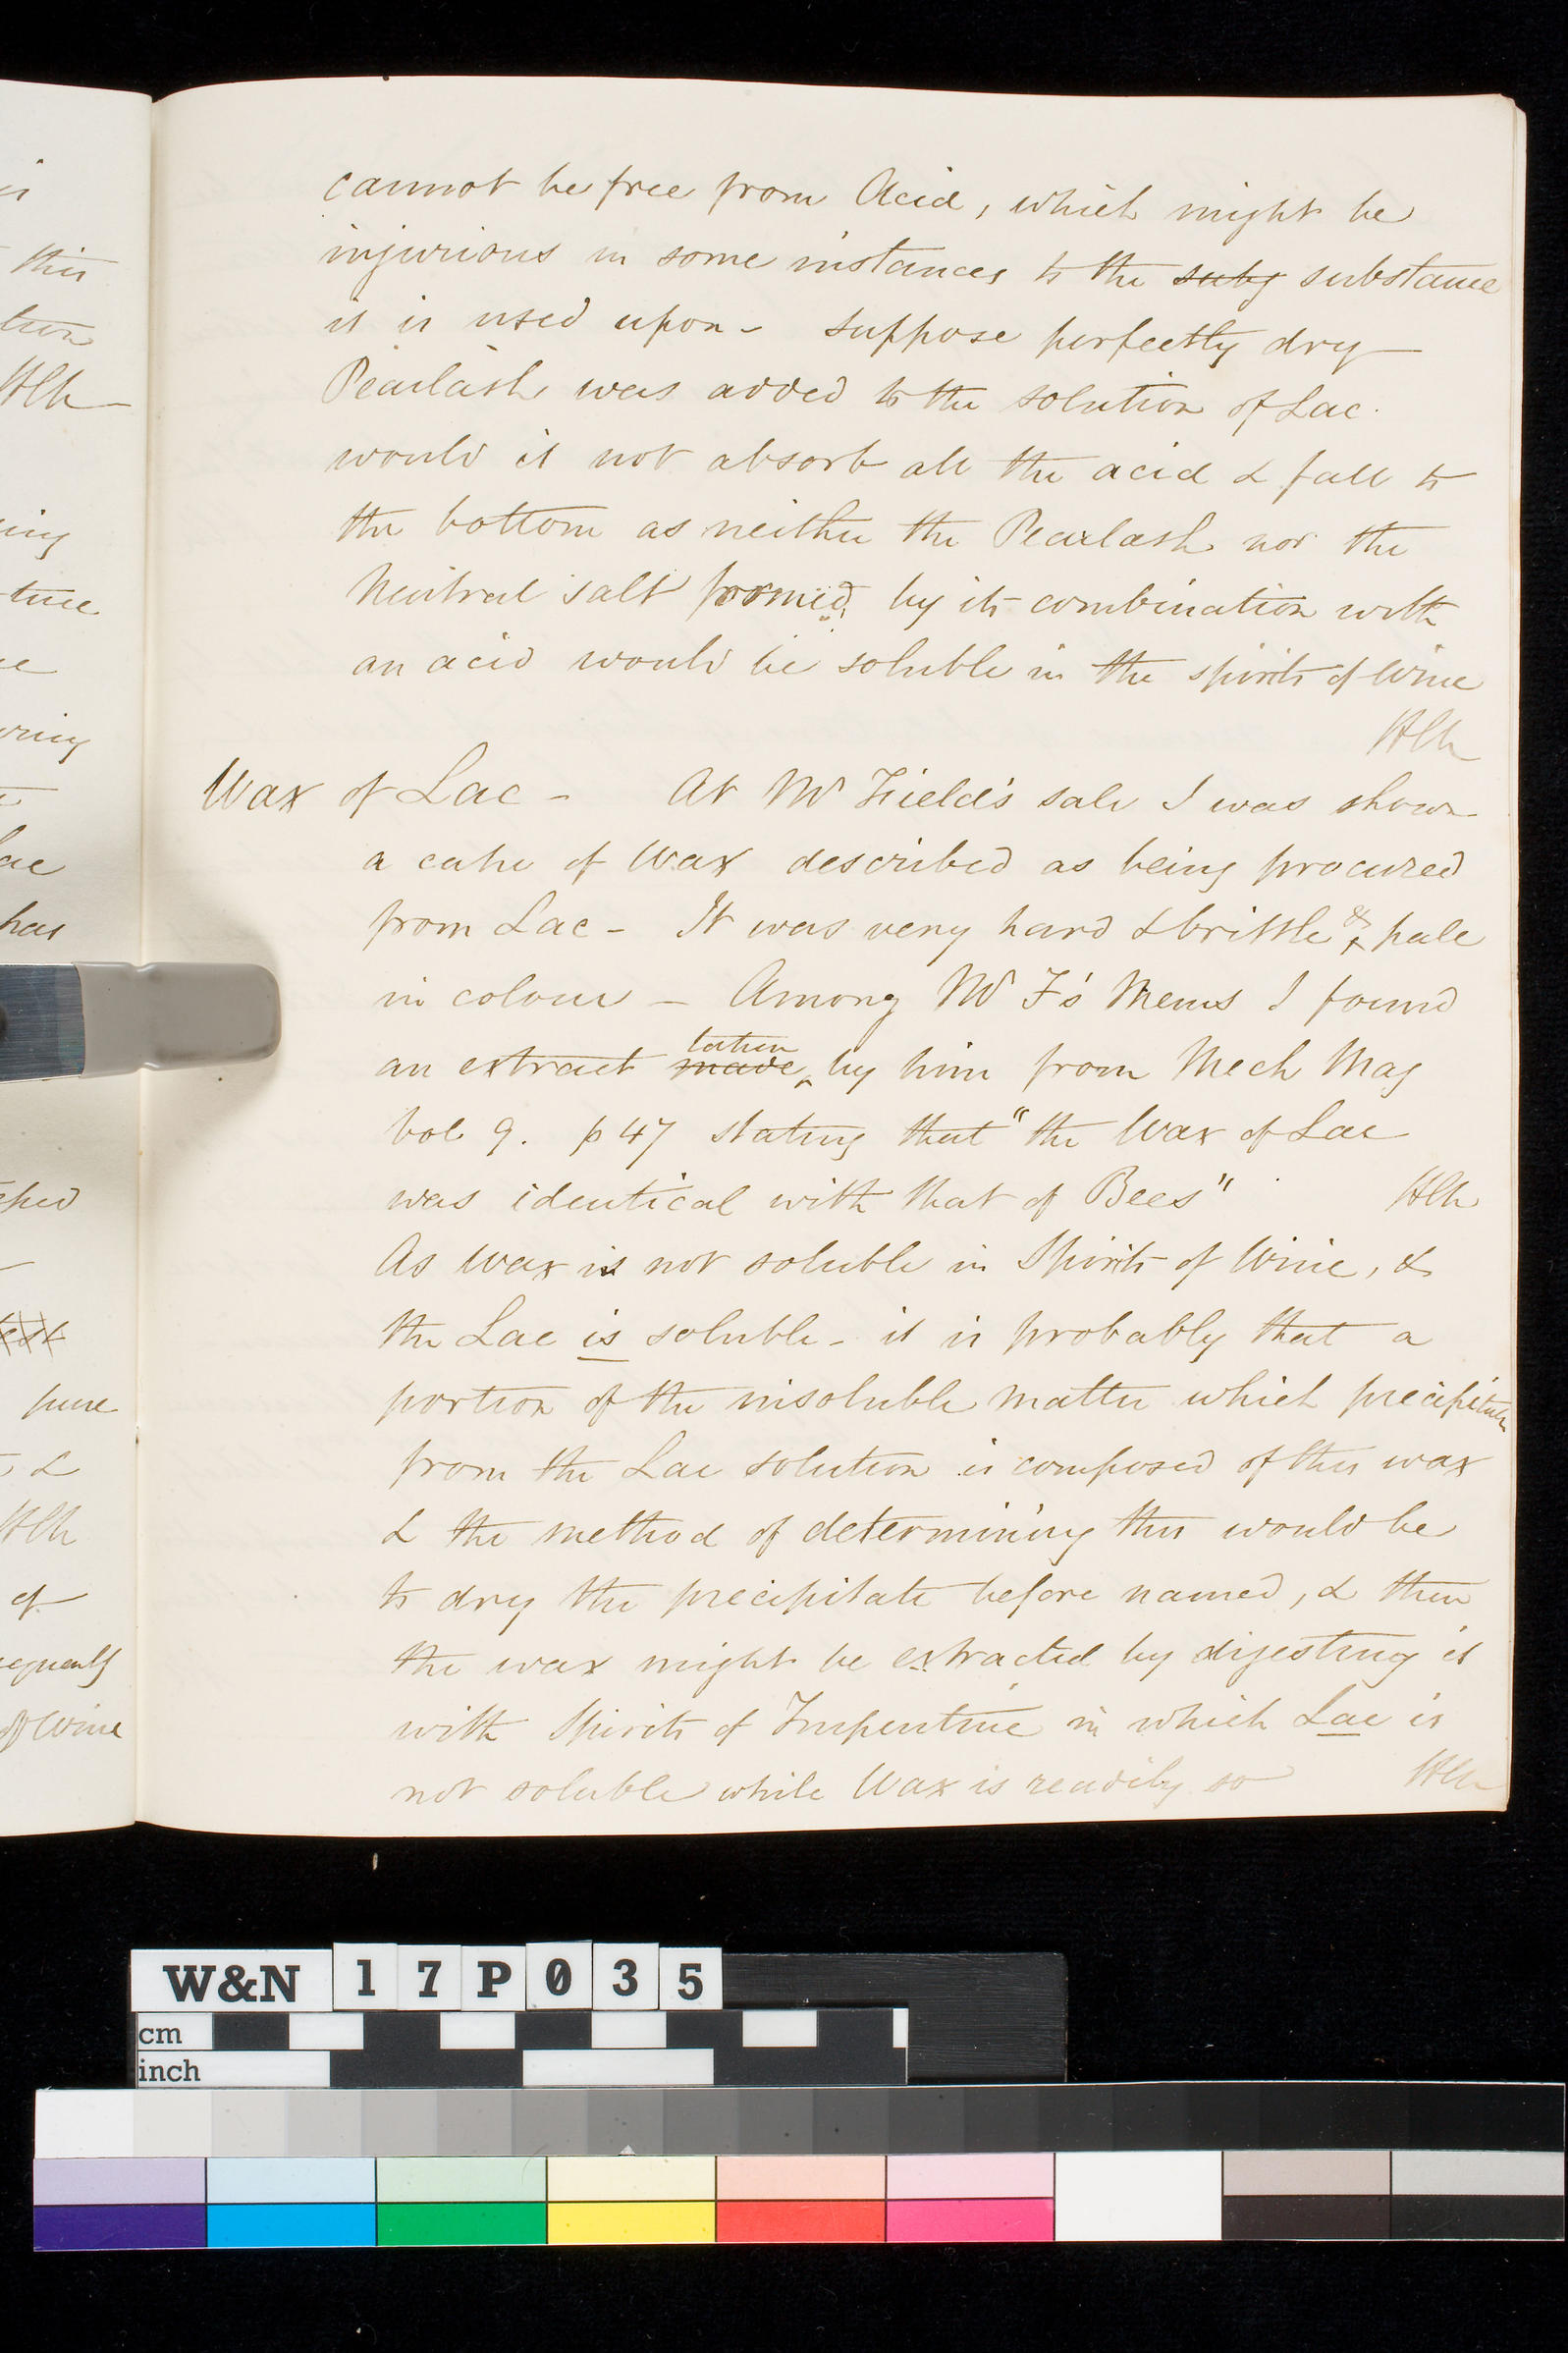 cannot be free from Acid, which might be
injurious in some instances to the subs substance
it is used upon - suppose perfectly dry
Pearlash was added to the solution of Lac.
would it not absorb all the acid & fall to
the bottom as neither the Pearlash nor the
Neutral salt formed by its combination with
an acid would be soluble in the spirits of Wine
Wax of Lac - At Mr Field's sale I was shown
a cake of Wax described as being procured
from Lac - It was very hard & brittle & pale
in colour - Among Mr F's Mems I found
an extract made taken by him from Mech Mag
vol 9. p 47 stating that "the Wax of Lac
was identical with that of Bees"
As Wax is not soluble in Spirits of Wine, &
the Lac is soluble - it is probably that a
portion of the insoluble matter which precipitates
from the Lac solution is composed of this wax
& the method of determining this would be
to dry the precipitate before named, & then
the wax might be extracted by digesting it
with Spirits of Turpentine in which Lac is
not soluble while Wax is readily so
this
has
pure
of
of Wine
W&N 17P035
cm
inch